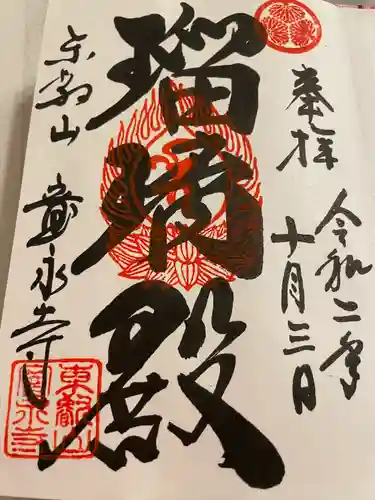 奉拝
令和二年
十月三日
瑠璃殿
東叡山
寛永寺
東叡山
寛永寺